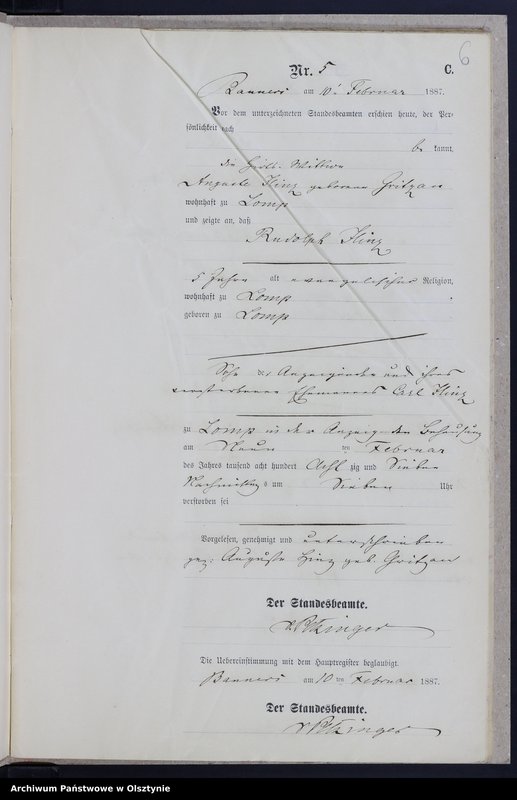 6
Nr. 5 C.
Banners am 10. Februar 1887.
Vor dem unterzeichneten Standesbeamten erschien heute, der Per-
sönlichkeit nach
be kannt,
die Wittwe
Auguste Hinz geborene Gritzan
wohnhaft zu Lomp
und zeigte an, daß
Rudolph Hinz
5 Jahre alt evangelischer Religion,
wohnhaft zu Lomp
geboren zu Lomp
Sohn der Anzeigenden und ihres
verstorbenen Ehemannes Carl Hinz
zu Lomp in der Anzeigenden Behausung
am Neun ten Februar
des Jahres tausend acht hundert Acht zig und Sieben
Nachmittags um Sieben Uhr
verstorben sei
Vorgelesen, genehmigt und unterschrieben
gez: Auguste Hinz geb. Gritzan
Der Standesbeamte.
Die Uebereinstimmung mit dem Hauptregister beglaubigt.
Banners am 10 ten Februar 1887.
Der Standesbeamte.
Archiwum Państwowe w Olsztynie